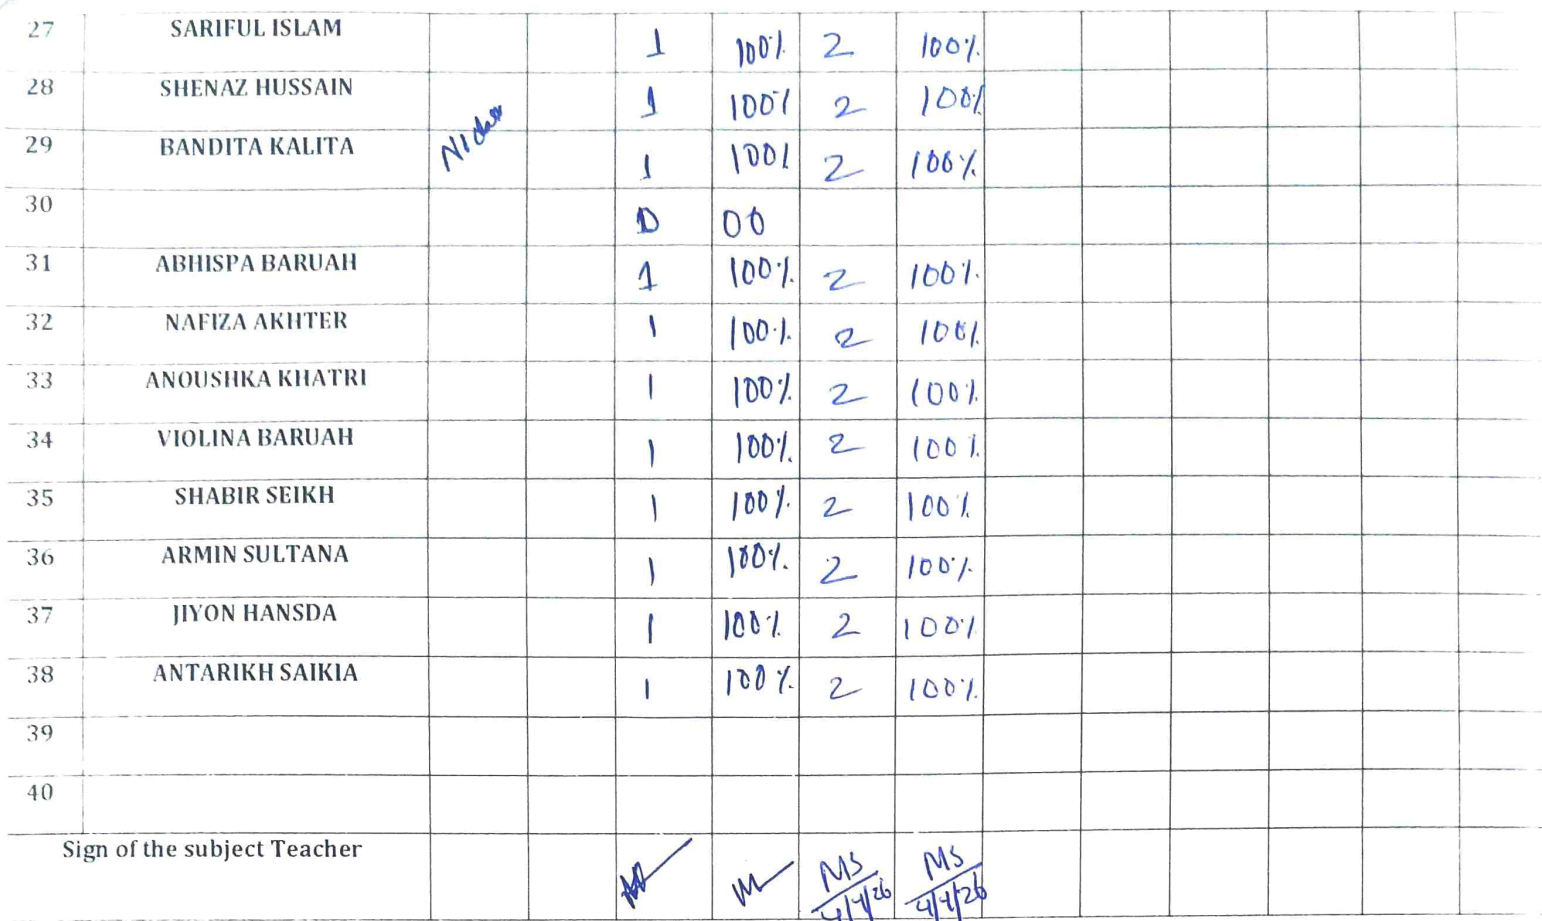 27 SARIFUL ISLAM 1 100% 2 100%
28 SHENAZ HUSSAIN 1 100% 2 100%
29 BANDITA KALITA 1 100% 2 100%
30 0 00
31 ABHISPA BARUAH 1 100% 2 100%
32 NAFIZA AKHTER 1 100% 2 100%
33 ANOUSHKA KHATRI 1 100% 2 100%
34 VIOLINA BARUAH 1 100% 2 100%
35 SHABIR SEIKH 1 100% 2 100%
36 ARMIN SULTANA 1 100% 2 100%
37 JIYON HANSDA 1 100% 2 100%
38 ANTARIKH SAIKIA 1 100% 2 100%
39
40
Sign of the subject Teacher MS MS
4/4/26 4/4/26